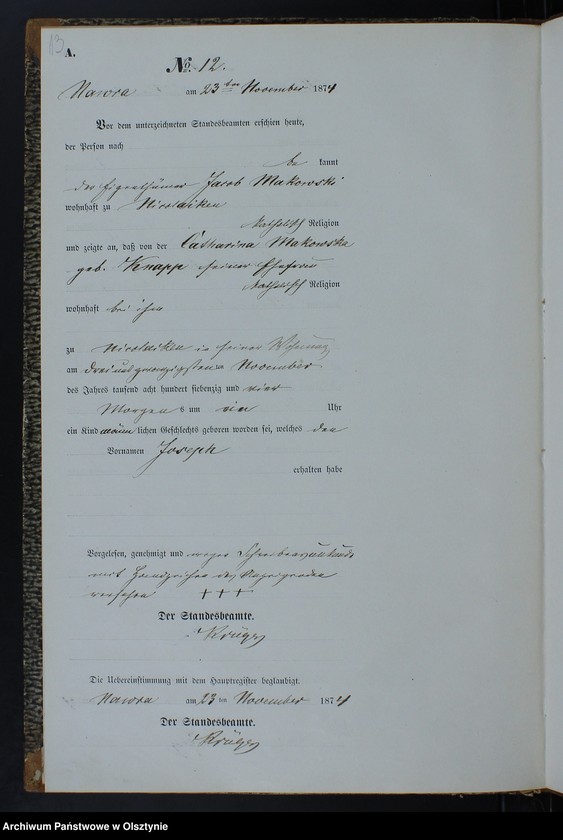 13
A.
No. 12.
Nawra am 23ten November 1874
Vor dem unterzeichneten Standesbeamten erschien heute,
der Person nach
be kannt
der Eigenthümer Jacob Makowski
wohnhaft zu Nicolaiken
katholisch Religion
und zeigte an, daß von der Catharina Makowska
geb. Knapp seiner Ehefrau
katholisch Religion
wohnhaft bei ihm
zu Nicolaiken in seiner Wohnung
am dreiundzwanzigsten November
des Jahres tausend acht hundert siebenzig und vier
Morgen s um ein Uhr
ein Kind männ lichen Geschlechts geboren worden sei, welches den
Vornamen Joseph
erhalten habe
Vorgelesen, genehmigt und wegen Schreibensunkunde
mit Handzeichen des
versehen + + +
Der Standesbeamte.
Krüger
Die Uebereinstimmung mit dem Hauptregister beglaubigt.
Nawra am 23 ten November 1874
Der Standesbeamte.
Krüger
Archiwum Państwowe w Olsztynie